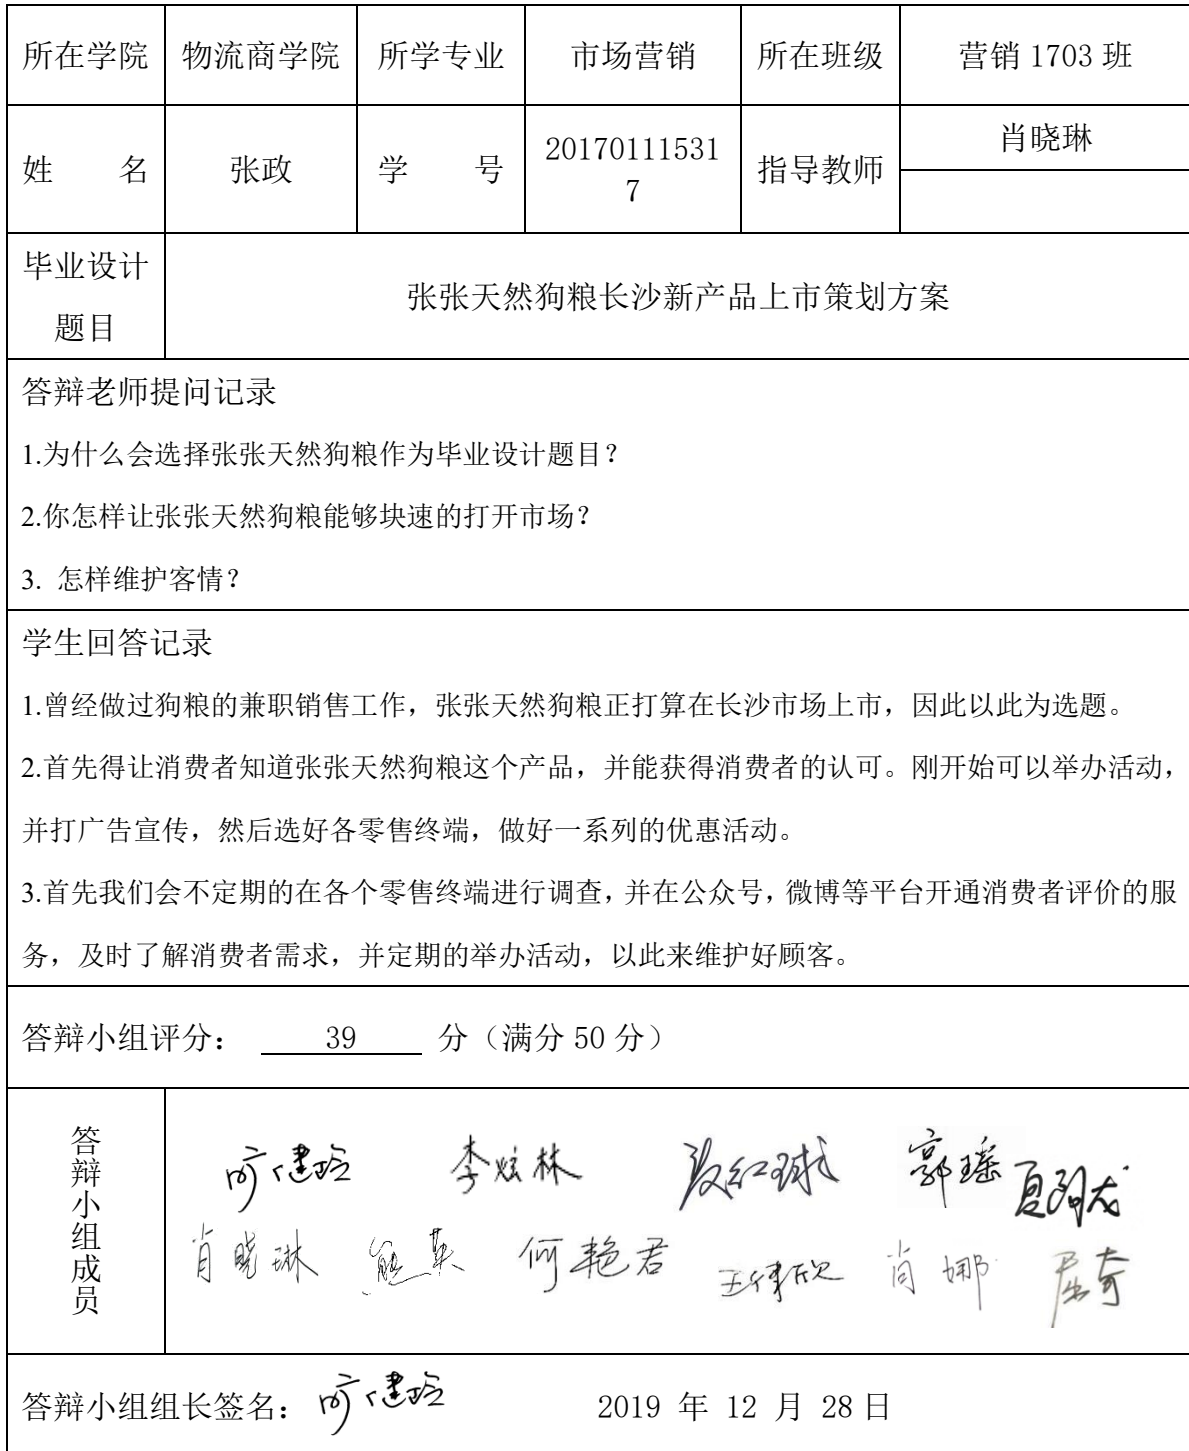 所在学院 物流商学院 所学专业 市场营销 所在班级 营销 1703 班
姓 名 张政 学 号 20170111531
7 指导教师 肖晓琳
毕业设计
题目
张张天然狗粮长沙新产品上市策划方案
答辩老师提问记录
1.为什么会选择张张天然狗粮作为毕业设计题目？
2.你怎样让张张天然狗粮能够块速的打开市场？
3. 怎样维护客情？
学生回答记录
1.曾经做过狗粮的兼职销售工作，张张天然狗粮正打算在长沙市场上市，因此以此为选题。
2.首先得让消费者知道张张天然狗粮这个产品，并能获得消费者的认可。刚开始可以举办活动，
并打广告宣传，然后选好各零售终端，做好一系列的优惠活动。
3.首先我们会不定期的在各个零售终端进行调查，并在公众号，微博等平台开通消费者评价的服
务，及时了解消费者需求，并定期的举办活动，以此来维护好顾客。
答辩小组评分： 39 分（满分 50 分）
答辩小组成员
旷健玲 李炫林 郭瑶
肖晓琳 熊英 何艳君 肖娜 屈奇
答辩小组组长签名：旷健玲 2019 年 12 月 28 日